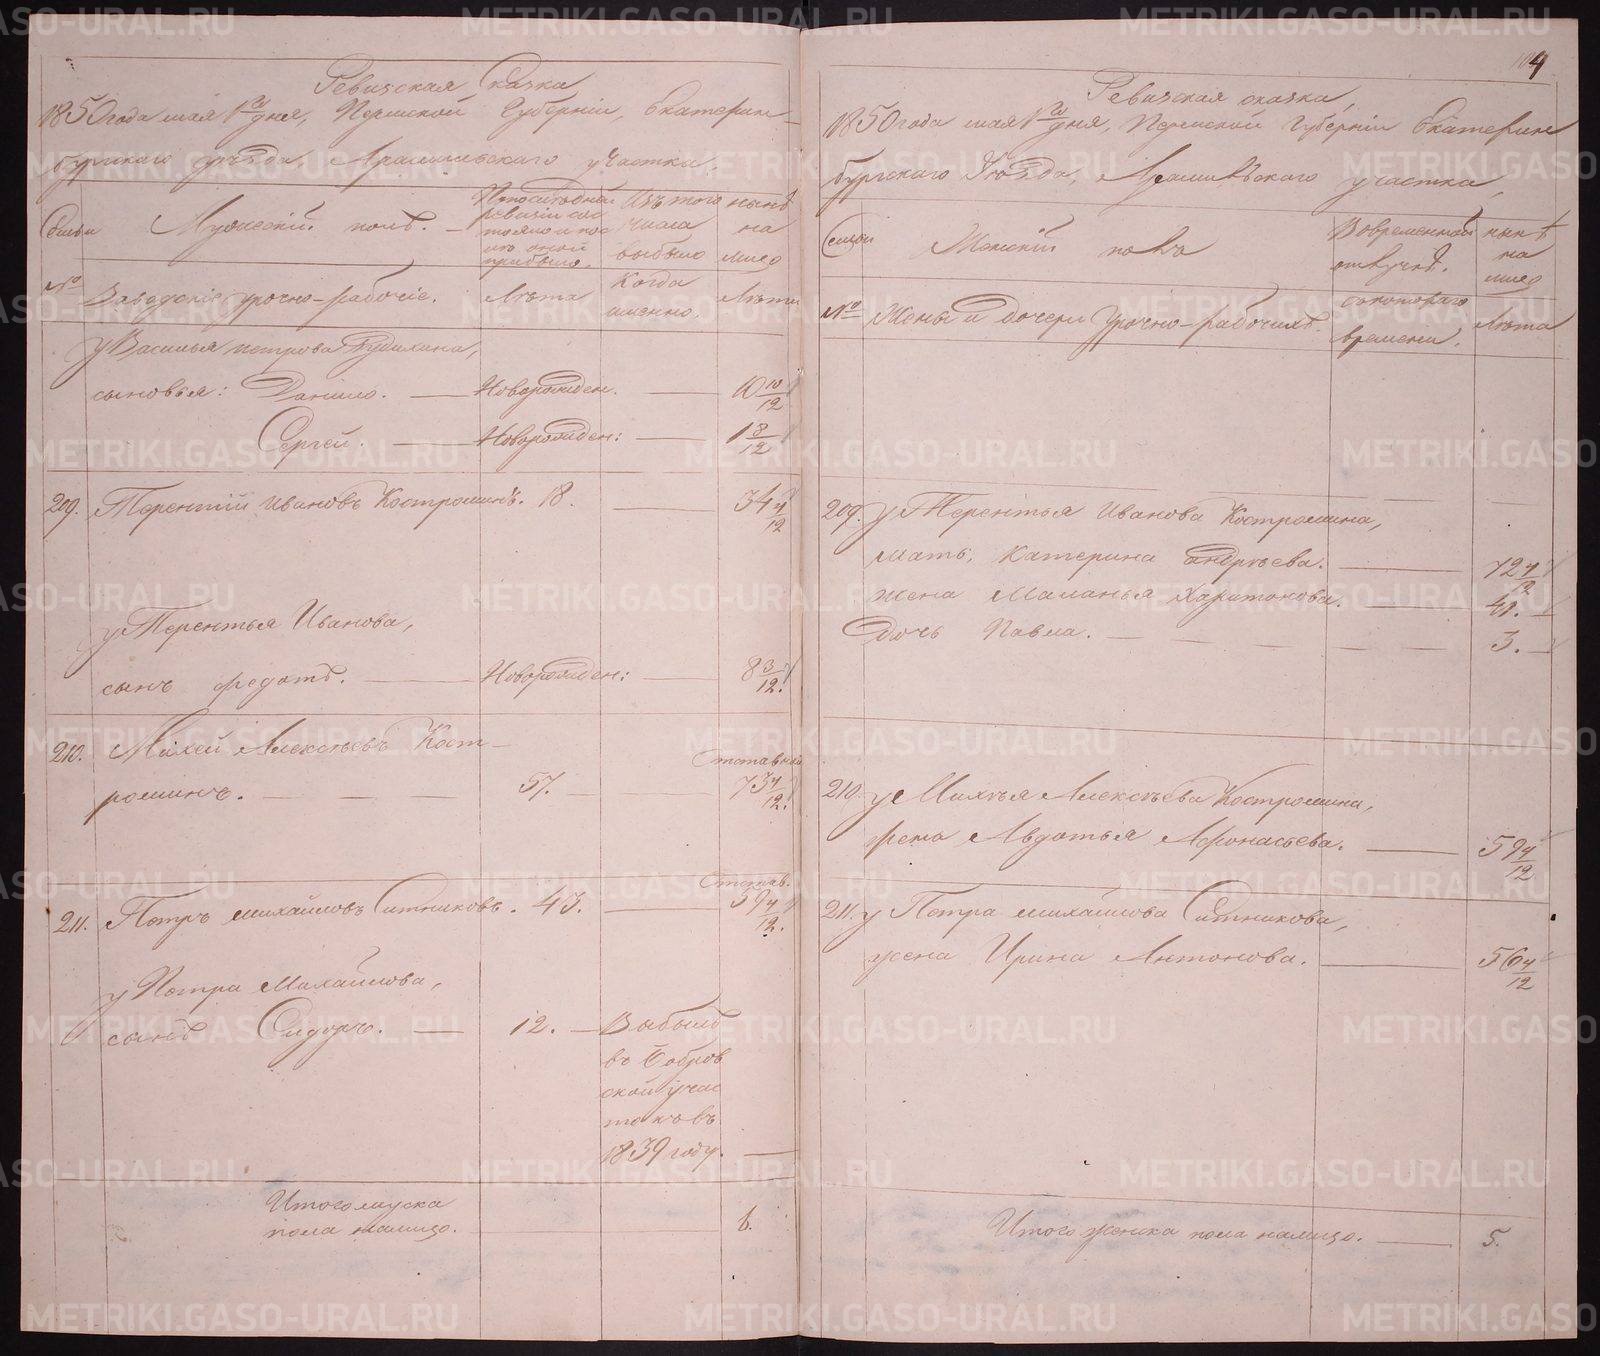 Ревизская сказка
1850 года мая 1го дня, Пермской Губернiи, Екатерин-
бургскаго уѣзда, Арамильскаго участка.
Семьи
Мужескiй полъ.
По последней ревизiи состояло и после оной прибыло,
Изъ того числа выбыло
нынѣ на лицо
№
Заводскiе урочно-рабочiе.
Лѣта
Когда именно.
Лѣта
у Василья Петрова
сыновья: Данiило. Новорожден. 10 10/12
Сергей. Новорожден: 1 8/12
209. Терентiй Ивановъ Костроминъ. 18. 34 4/12
у Терентья Иванова,
сынъ Федотъ. Новорожден: 8 3/12.
210. Михей Алексѣевъ Кост-
роминъ. 57. Отставной 73 4/12.
211. Петръ Михайловъ Ситниковъ. 43. Отстав. 59 4/12.
у Петра Михайлова,
сынъ Сидоръ. 12. Выбылъ
въ Бобров
ской учас
токъ въ
1839 году.
Итого муска
пола налицо. 6.
104
Ревизская сказка,
1850 года мая 1го дня, Пермской Губернiи Екатерин
бургскаго Уѣзда, Арамильскаго участка,
Семьи
Женскiй полъ
Во временной отлучкѣ.
нынѣ на лицо
№
Жены и дочери Урочно-рабочихъ.
съ котораго времени.
Лѣта
209. у Терентья Иванова Костромина,
мать, Катерина Андрѣева. 72 4/12
жена Маланья Харитонова. 41.
Дочь Павла. 3.
210. у Михѣя Алексѣева Костромина,
жена Авдотья Афонасьева. 59 4/12
211. у Петра Михайлова Ситникова,
жена Ирина Антонова. 56 4/12
Итого женска пола налицо. 5.
METRIKI.GASO-URAL.RU